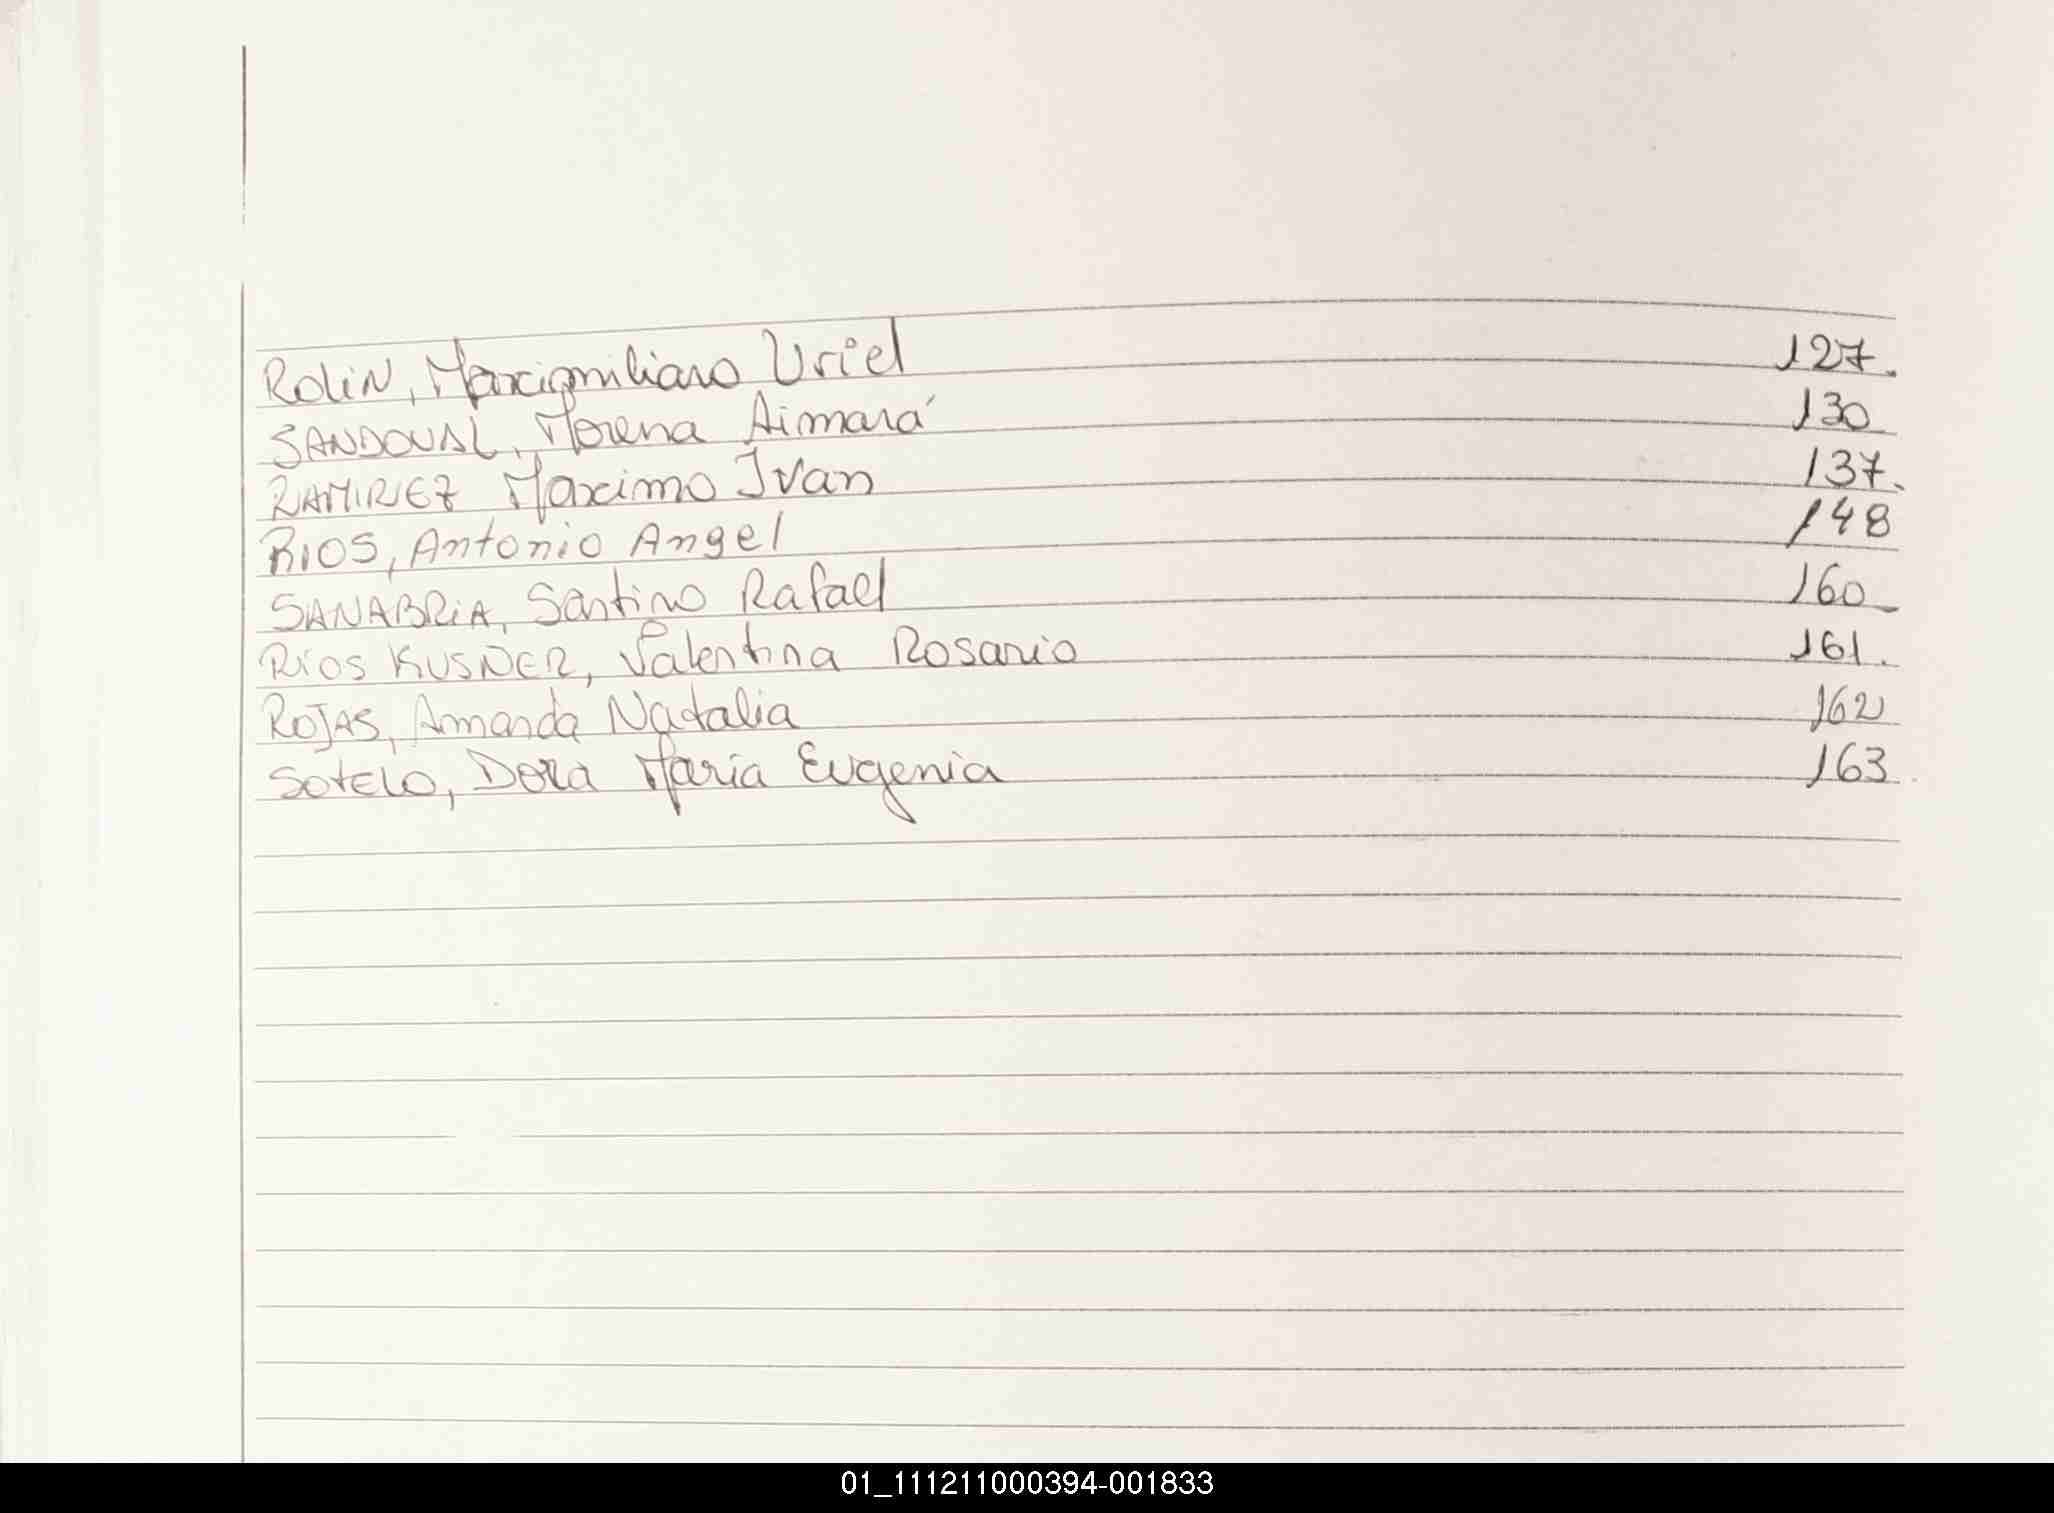 ROLIN, Maximiliano Uriel 127.
SANDOVAL, Morena Aimará 130
RAMIREZ Maximo Ivan 137.
RIOS, Antonio Angel 148
SANABRIA, Santino Rafael 160
RIOS KUSNER, Valentina Rosario 161.
ROJAS, Amanda Natalia 162
SOTELO, Dora Maria Eugenia 163
01_111211000394-001833